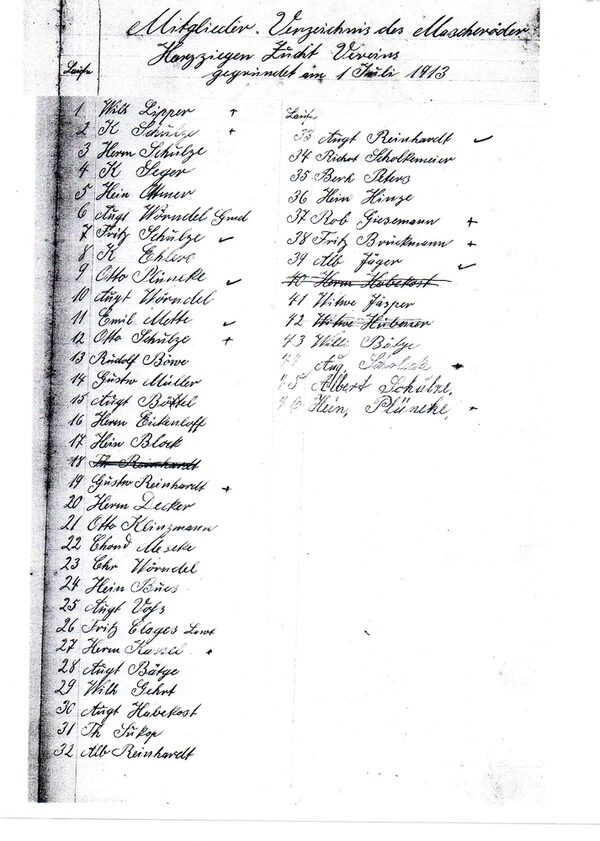 Mitglieder-Verzeichnis des Mascheröder
Harzziegen Zucht Vereins
gegründet am 1 Juli 1913
Laufe
1 Wilh Lipper +
2 K Schulze +
3 Herm Schulze
4 K Seger
5 Hein Ottmer
6 Augt Wörndel Gmd
7 Fritz Schulze ✓
8 K Ehlers
9 Otto Plüneke ✓
10 Augt Wörndel
11 Emil Mette ✓
12 Otto Schulze +
13 Rudolf Böwe
14 Gustv Müller
15 Augt Böttel
16 Herm Eickenloff
17 Hein Block
18 Th Reinhardt
19 Gustv Reinhardt +
20 Herm Decker
21 Otto Klinzmann
22 Meseke
23 Chr Wörndel
24 Hein Bues
25 Augt Voſs
26 Fritz Clages Lwt
27 Herm Kassel +
28 Augt Bätge
29 Wilh Gehrt
30 Augt Habekost
31 Th Sukop
32 Alb Reinhardt
Laufe
33 Augt Reinhardt ✓
34 Richt Scholkemeier
35 Berh Peters
36 Hein Hinze
37 Rob Giesemann +
38 Fritz Brückmann +
39 Alb Jäger ✓
40 Herm Habekost
41 Witwe Jäsper
42 Witwe Hübener
43 Willi Bätge
44 Aug. +
45 Albert Schulze.
46 Hein, Plüneke +